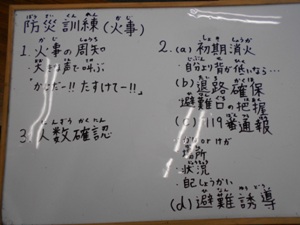 防災訓練(火事)
1. 火事の周知
・大きな声で叫ぶ
「かじだー!! たすけてー!!」
3. 人数確認
2. (a) 初期消火
・自分より背が低いなら…
(b) 退路確保
避難台の把握
(c) 119番通報
・火事 or けが
・場所
・状況
・自己しょうかい
(d) 避難誘導